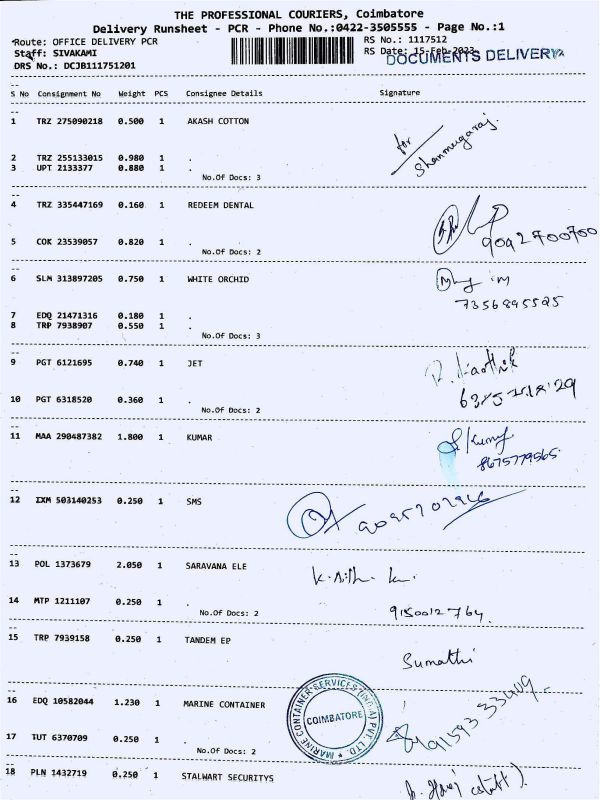 THE PROFESSIONAL COURIERS, Coimbatore
Delivery Runsheet - PCR - Phone No.:0422-3505555 - Page No.:1
Route: OFFICE DELIVERY PCR
RS No.: 1117512
Staff: SIVAKAMI
RS Date: 15-Feb-2023
DOCUMENTS DELIVERY
DRS No.: DCJB111751201
S No Consignment No Weight PCS Consignee Details Signature
1 TRZ 275090218 0.500 1 AKASH COTTON
for
Shanmugaraj
2 TRZ 255133015 0.980 1 .
3 UPT 2133377 0.880 1 .
No.Of Docs: 3
4 TRZ 335447169 0.160 1 REDEEM DENTAL
9092700700
5 COK 23539057 0.820 1 .
No.Of Docs: 2
6 SLM 313897205 0.750 1 WHITE ORCHID
7356895525
7 EDQ 21471316 0.180 1 .
8 TRP 7938907 0.550 1 .
No.Of Docs: 3
9 PGT 6121695 0.740 1 JET
10 PGT 6318520 0.360 1 .
No.Of Docs: 2
11 MAA 290487382 1.800 1 KUMAR
8675779565
12 IXM 503140253 0.250 1 SMS
13 POL 1373679 2.050 1 SARAVANA ELE
14 MTP 1211107 0.250 1 .
9150012764
No.Of Docs: 2
15 TRP 7939158 0.250 1 TANDEM EP
Sumathi
16 EDQ 10582044 1.230 1 MARINE CONTAINER
MARINE CONTAINER SERVICES (INDIA) PVT. LTD.
COIMBATORE
17 TUT 6370709 0.250 1 .
No.Of Docs: 2
18 PLN 1432719 0.250 1 STALWART SECURITYS